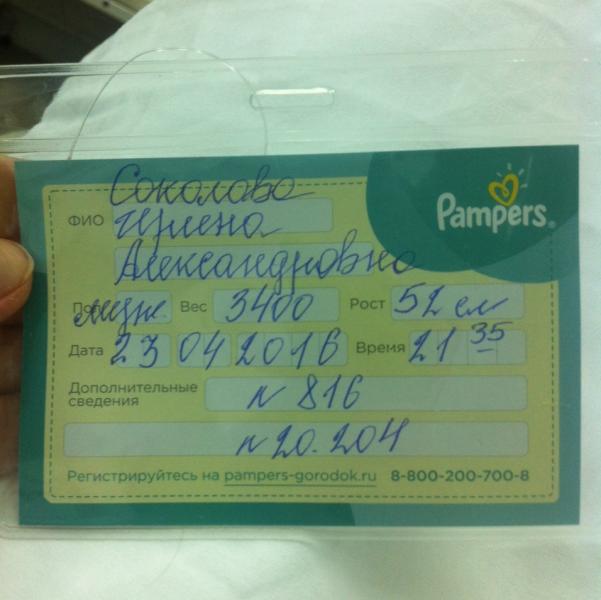 Соколова
Pampers
ФИО Ирлена
Александровна
Пол муж. Вес 3400 Рост 52 см
Дата 23 04 2016 Время 21 35
Дополнительные
сведения
N 816
N 20.204
Регистрируйтесь на pampers-gorodok.ru 8-800-200-700-8